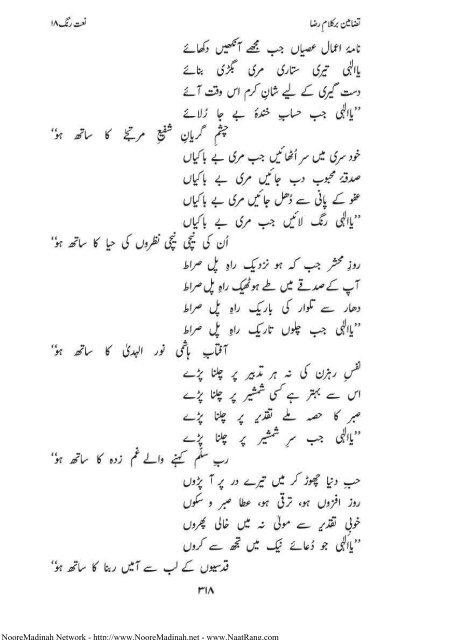 تضامین بر کلامِ رضا
نعت رنگ ۱۸
نامۂ اعمال عصیاں جب مجھے آنکھیں دکھائے
یاالٰہی تیری ستاری مری بگڑی بنائے
دست گیری کے لیے شانِ کرم اس وقت آئے
’’یاالٰہی جب حسابِ خندۂ بے جا رُلائے
چشمِ گریانِ شفیعِ مرتجےٰ کا ساتھ ہو‘‘
خود سری میں سر اُٹھائیں جب مری بے باکیاں
صدقۂ محبوب دب جائیں مری بے باکیاں
عفو کے پانی سے دُھل جائیں مری بے باکیاں
’’یاالٰہی رنگ لائیں جب مری بے باکیاں
اُن کی نیچی نیچی نظروں کی حیا کا ساتھ ہو‘‘
روزِ محشر جب کہ ہو نزدیک راہِ پل صراط
آپ کے صدقے میں طے ہو ٹھیک راہِ پل صراط
دھار سے تلوار کی باریک راہِ پل صراط
’’یاالٰہی جب چلوں تاریک راہِ پل صراط
آفتابِ ہاشمی نور الہدیٰ کا ساتھ ہو‘‘
نفسِ رہزن کی نہ ہر تدبیر پر چلنا پڑے
اس سے بہتر ہے کسی شمشیر پر چلنا پڑے
صبر کا حصہ ملے تقدیر پر چلنا پڑے
’’یاالٰہی جب سرِ شمشیر پر چلنا پڑے
ربِ سلّم کہنے والے غم زدہ کا ساتھ ہو‘‘
حبِ دنیا چھوڑ کر میں تیرے در پر آ پڑوں
روز افزوں ہو، ترقی ہو، عطا صبر و سکوں
خوبیِ تقدیر سے مولیٰ نہ میں خالی پھروں
’’یاالٰہی جو دُعائے نیک میں تجھ سے کروں
قدسیوں کے لب سے آمیں ربنا کا ساتھ ہو‘‘
۳۱۸
NooreMadinah Network - http://www.NooreMadinah.net - www.NaatRang.com